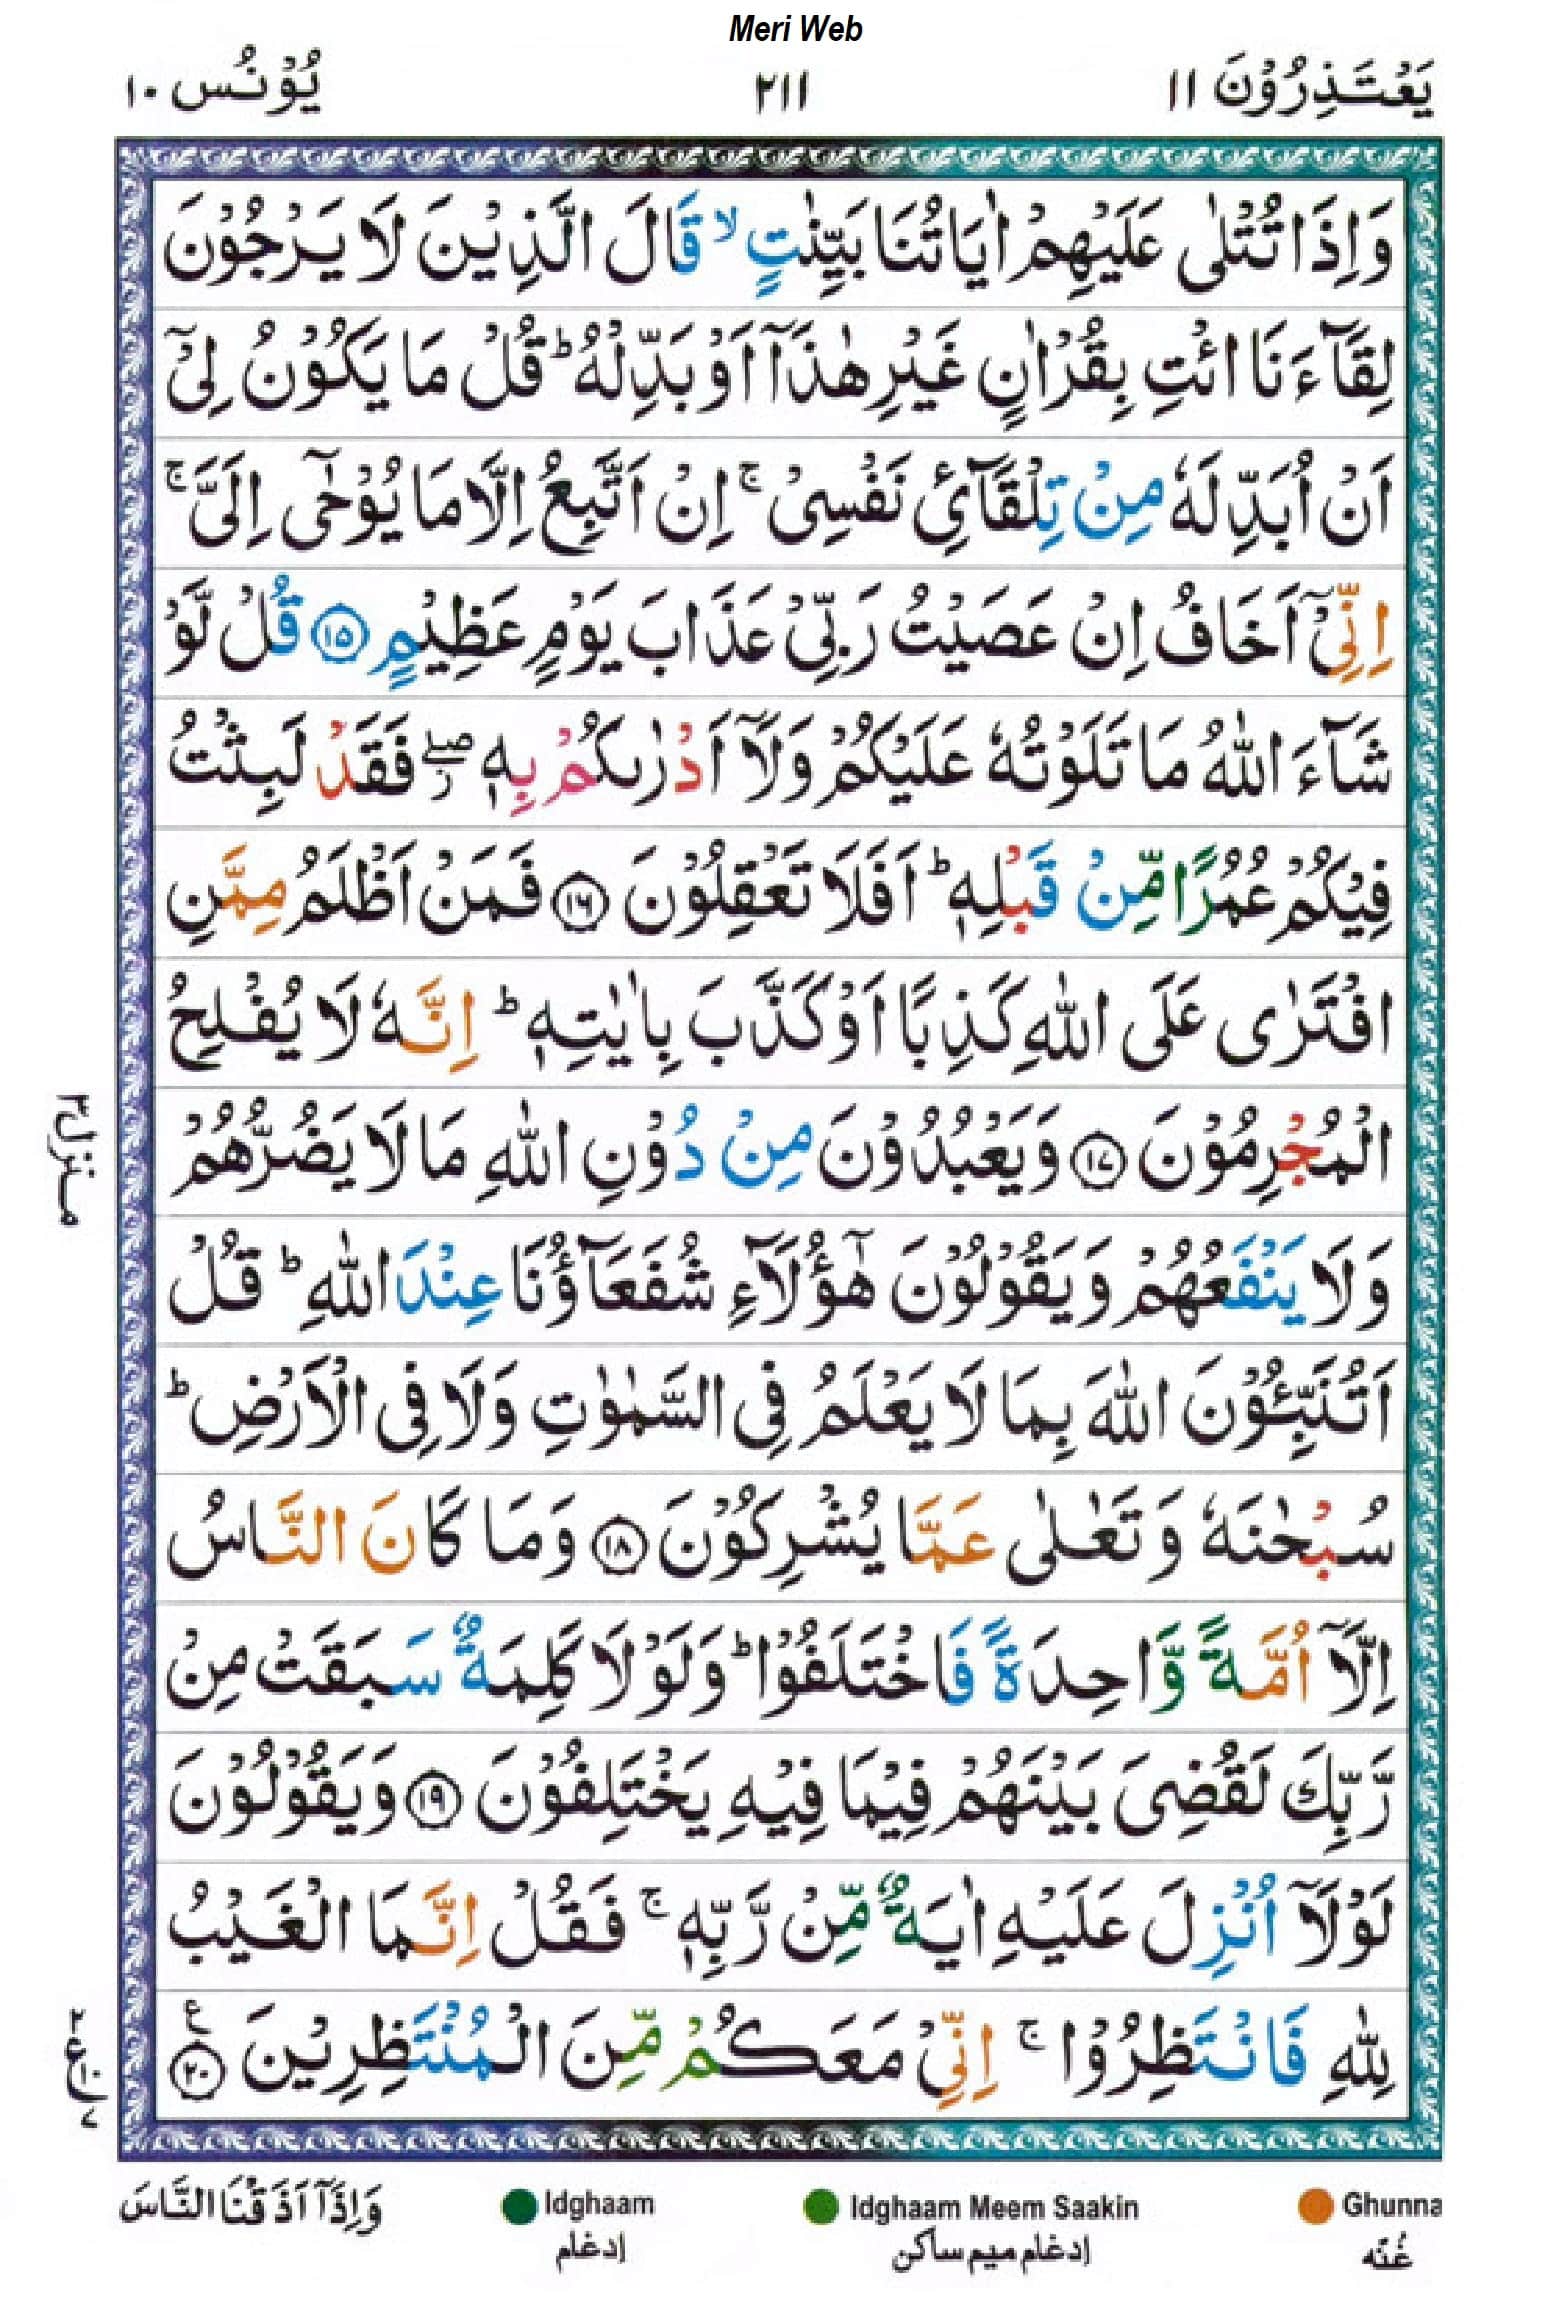 Meri Web
يَعْتَذِرُوْنَ ١١
٢١١
يُوْنُس ١٠
وَاِذَا تُتْلٰى عَلَيْهِمْ اٰيَاتُنَا بَيِّنٰتٍ ۙ قَالَ الَّذِيْنَ لَا يَرْجُوْنَ
لِقَآءَنَا ائْتِ بِقُرْاٰنٍ غَيْرِ هٰذَآ اَوْ بَدِّلْهُ ؕ قُلْ مَا يَكُوْنُ لِىْۤ
اَنْ اُبَدِّلَهٗ مِنْ تِلْقَآئِ نَفْسِىْ ۚ اِنْ اَتَّبِعُ اِلَّا مَا يُوْحٰۤى اِلَىَّ ۚ
اِنِّىْۤ اَخَافُ اِنْ عَصَيْتُ رَبِّىْ عَذَابَ يَوْمٍ عَظِيْمٍ ۝١٥ قُلْ لَّوْ
شَآءَ اللّٰهُ مَا تَلَوْتُهٗ عَلَيْكُمْ وَلَاۤ اَدْرٰىكُمْ بِهٖ ۖ ز فَقَدْ لَبِثْتُ
فِيْكُمْ عُمُرًا مِّنْ قَبْلِهٖ ؕ اَفَلَا تَعْقِلُوْنَ ۝١٦ فَمَنْ اَظْلَمُ مِمَّنِ
افْتَرٰى عَلَى اللّٰهِ كَذِبًا اَوْ كَذَّبَ بِاٰيٰتِهٖ ؕ اِنَّهٗ لَا يُفْلِحُ
الْمُجْرِمُوْنَ ۝١٧ وَيَعْبُدُوْنَ مِنْ دُوْنِ اللّٰهِ مَا لَا يَضُرُّهُمْ
وَلَا يَنْفَعُهُمْ وَيَقُوْلُوْنَ هٰۤؤُلَآءِ شُفَعَآؤُنَا عِنْدَ اللّٰهِ ؕ قُلْ
اَتُنَبِّئُوْنَ اللّٰهَ بِمَا لَا يَعْلَمُ فِى السَّمٰوٰتِ وَلَا فِى الْاَرْضِ ؕ
سُبْحٰنَهٗ وَتَعٰلٰى عَمَّا يُشْرِكُوْنَ ۝١٨ وَمَا كَانَ النَّاسُ
اِلَّاۤ اُمَّةً وَّاحِدَةً فَاخْتَلَفُوْا ؕ وَلَوْلَا كَلِمَةٌ سَبَقَتْ مِنْ
رَّبِّكَ لَقُضِىَ بَيْنَهُمْ فِيْمَا فِيْهِ يَخْتَلِفُوْنَ ۝١٩ وَيَقُوْلُوْنَ
لَوْلَاۤ اُنْزِلَ عَلَيْهِ اٰيَةٌ مِّنْ رَّبِّهٖ ۚ فَقُلْ اِنَّمَا الْغَيْبُ
لِلّٰهِ فَانْتَظِرُوْا ۚ اِنِّىْ مَعَكُمْ مِّنَ الْمُنْتَظِرِيْنَ ۝٢٠ ع
منزل ٣
وَاِذَاۤ اَذَقْنَا النَّاسَ
Idghaam
إدغام
Idghaam Meem Saakin
إدغام ميم ساكن
Ghunna
غُنّه